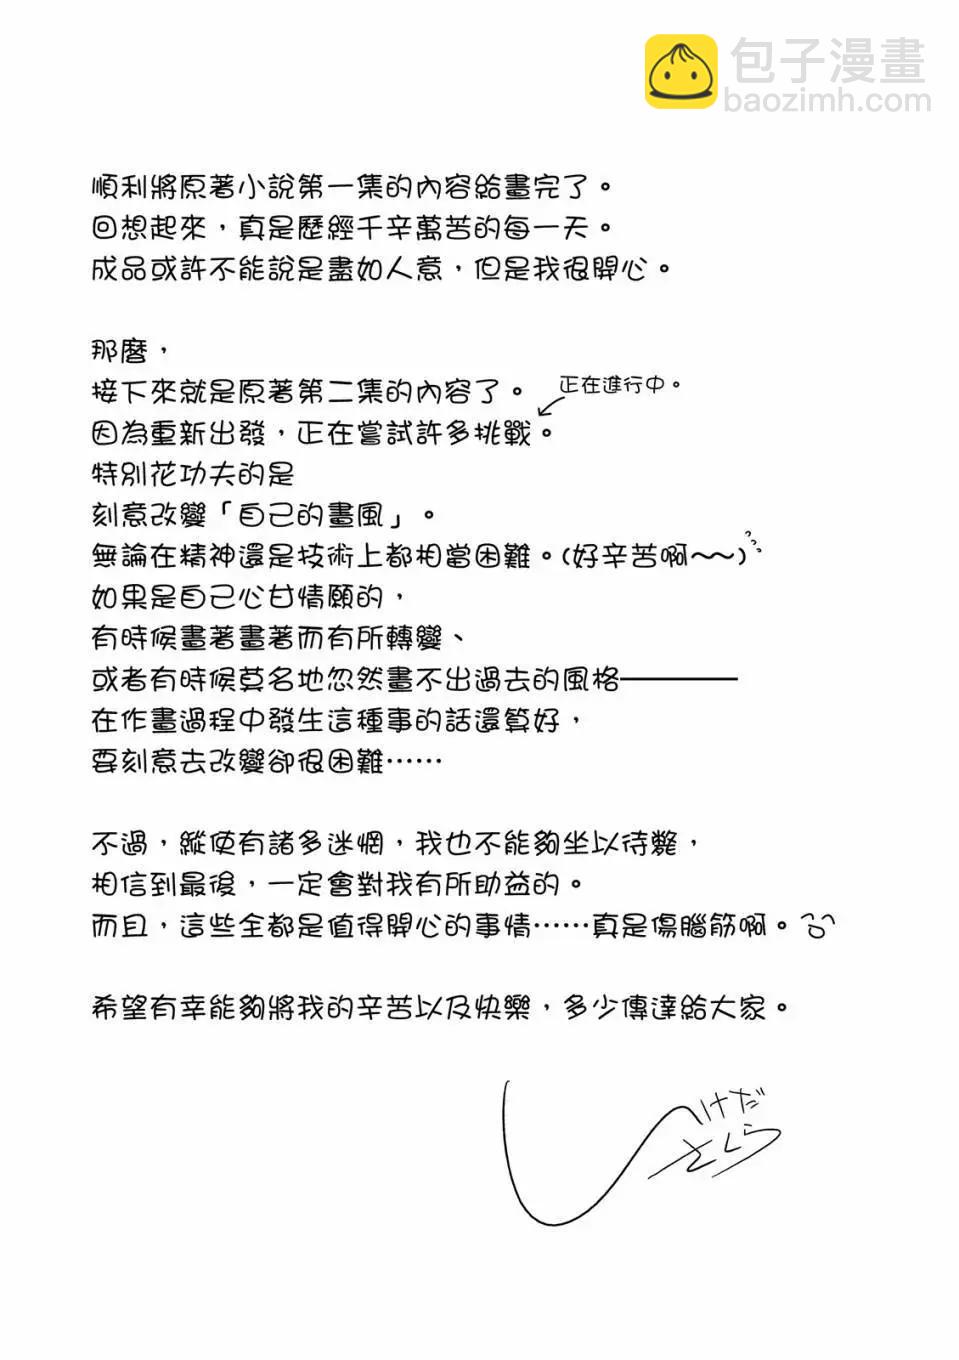 包子漫畫
baozimh.com
順利將原著小說第一集的內容給畫完了。
回想起來，真是歷經千辛萬苦的每一天。
成品或許不能說是盡如人意，但是我很開心。
那麼，
接下來就是原著第二集的內容了。
正在進行中。
因為重新出發，正在嘗試許多挑戰。
特別花功夫的是
刻意改變「自己的畫風」。
無論在精神還是技術上都相當困難。(好辛苦啊～～)
如果是自己心甘情願的，
有時候畫著畫著而有所轉變、
或者有時候莫名地忽然畫不出過去的風格————
在作畫過程中發生這種事的話還算好，
要刻意去改變卻很困難……
不過，縱使有諸多迷惘，我也不能夠坐以待斃，
相信到最後，一定會對我有所助益的。
而且，這些全都是值得開心的事情……真是傷腦筋啊。
希望有幸能夠將我的辛苦以及快樂，多少傳達給大家。
しけだ
さくら